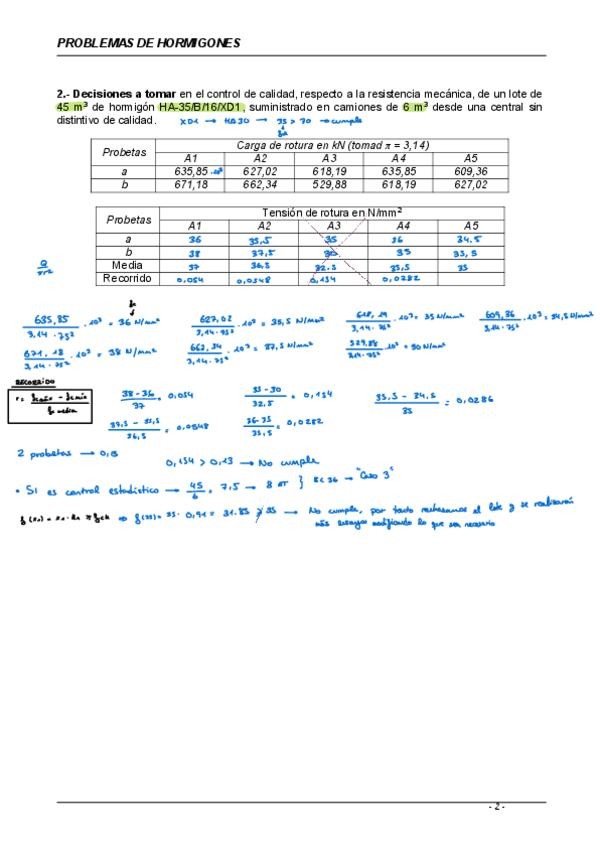 PROBLEMAS DE HORMIGONES
2.- Decisiones a tomar en el control de calidad, respecto a la resistencia mecánica, de un lote de
45 m³ de hormigón HA-35/B/16/XD1, suministrado en camiones de 6 m³ desde una central sin
distintivo de calidad. XD1 → HA30 → 35 > 30 → cumple
fck
Probetas Carga de rotura en kN (tomad π = 3,14)
A1 A2 A3 A4 A5
a 635,85 ·10³ 627,02 618,19 635,85 609,36
b 671,18 662,34 529,88 618,19 627,02
Probetas Tensión de rotura en N/mm²
A1 A2 A3 A4 A5
a 36 35,5 35 36 34.5
b 38 37,5 30 35 35,5
Media 37 36,5 32.5 35,5 35
Recorrido 0,054 0,0548 0,154 0,0282
Q/πr²
635,85/3,14·75² ·10³ = 36 N/mm² 627,02/3,14·75² ·10³ = 35,5 N/mm² 618,19/3,14·75² ·10³ = 35 N/mm² 609,36/3,14·75² ·10³ = 34,5 N/mm²
671,18/3,14·75² ·10³ = 38 N/mm² 662,34/3,14·75² ·10³ = 37,5 N/mm² 529,88/3,14·75² ·10³ = 30 N/mm²
RECORRIDO
r = fcmáx - fcmín / fc media
38-36/37 = 0,054 35-30/32,5 = 0,154 35,5 - 34,5/35 = 0,0286
37,5 - 35,5/36,5 = 0,0548 36-35/35,5 = 0,0282
2 probetas → 0,13
0,154 > 0,13 → No cumple
• Si es control estadístico → 45/6 = 7,5 → 8 AT } 8 < 36 → "Caso 3"
No cumple, por tanto rechazamos el lote y se realizarán
más ensayos modificando lo que sea necesario
- 2 -